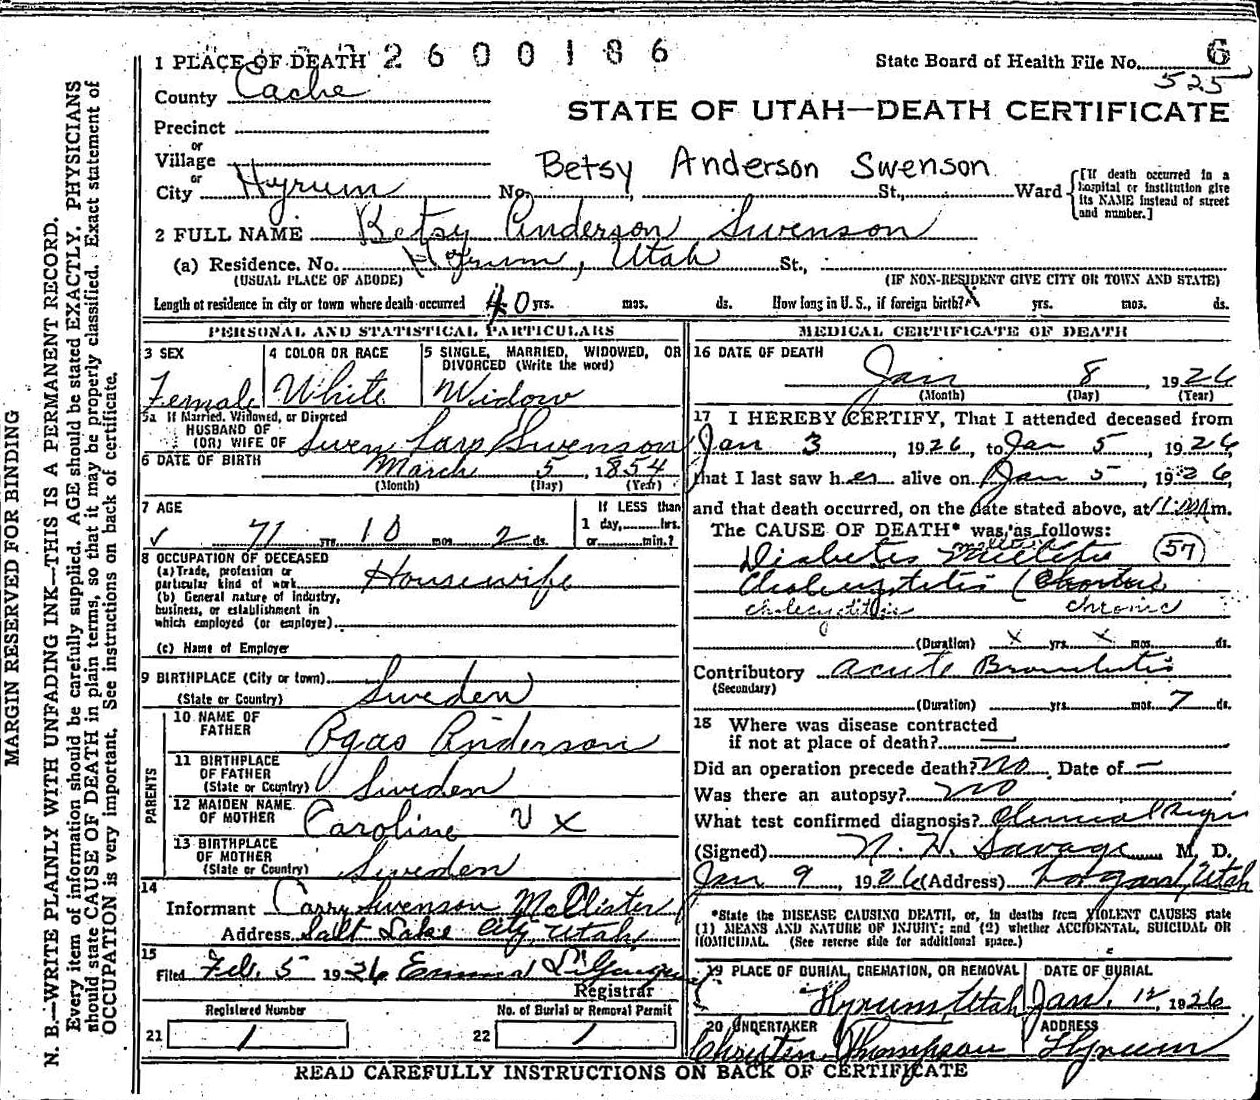 1 PLACE OF DEATH 2600186 State Board of Health File No. 6
525
County Cache
STATE OF UTAH—DEATH CERTIFICATE
Precinct
or
Village
or
Betsy Anderson Swenson
City Hyrum No. St., Ward [If death occurred in a hospital or institution give its NAME instead of street and number.]
2 FULL NAME Betsy Anderson Swenson
(a) Residence. No. Hyrum, Utah St.,
(USUAL PLACE OF ABODE) (IF NON-RESIDENT GIVE CITY OR TOWN AND STATE)
Length of residence in city or town where death occurred 40 yrs. mos. ds. How long in U. S., if foreign birth? yrs. mos. ds.
PERSONAL AND STATISTICAL PARTICULARS
3 SEX
Female
4 COLOR OR RACE
White
5 SINGLE, MARRIED, WIDOWED, OR
DIVORCED (Write the word)
Widow
5a If Married, Widowed, or Divorced
HUSBAND OF
(OR) WIFE OF Swen Lars Swenson
6 DATE OF BIRTH March 5, 1854
(Month) (Day) (Year)
7 AGE
71 yrs. 10 mos. 2 ds.
If LESS than
1 day, hrs.
or min.?
8 OCCUPATION OF DECEASED
(a) Trade, profession or
particular kind of work Housewife
(b) General nature of industry,
business, or establishment in
which employed (or employer)
(c) Name of Employer
9 BIRTHPLACE (City or town)
(State or Country) Sweden
PARENTS
10 NAME OF
FATHER Anderson
11 BIRTHPLACE
OF FATHER
(State or Country) Sweden
12 MAIDEN NAME
OF MOTHER Caroline
13 BIRTHPLACE
OF MOTHER
(State or Country) Sweden
14
Informant Carry Swenson McAllister
Address Salt Lake City, Utah
15
Filed Feb. 5 1926
Registrar
Registered Number
21 1
No. of Burial or Removal Permit
22 1
MEDICAL CERTIFICATE OF DEATH
16 DATE OF DEATH
Jan 8, 1926
(Month) (Day) (Year)
17 I HEREBY CERTIFY, That I attended deceased from
Jan 3, 1926, to Jan 5, 1926,
that I last saw her alive on Jan 5, 1926,
and that death occurred, on the date stated above, at m.
The CAUSE OF DEATH* was as follows:
mellitus
Diabetes Mellitis 57
Cholecystitis (
cholecystitis chronic
(Duration) x yrs. x mos. ds.
Contributory Acute Bronchitis
(Secondary)
(Duration) yrs. mos. 7 ds.
18 Where was disease contracted
if not at place of death? —
Did an operation precede death? no. Date of —
Was there an autopsy? no
What test confirmed diagnosis? Clinical Signs
(Signed) N. H. Savage M. D.
Jan 9, 1926 (Address) Logan, Utah
*State the DISEASE CAUSING DEATH, or, in deaths from VIOLENT CAUSES state
(1) MEANS AND NATURE OF INJURY; and (2) whether ACCIDENTAL, SUICIDAL OR
HOMICIDAL. (See reverse side for additional space.)
19 PLACE OF BURIAL, CREMATION, OR REMOVAL
Hyrum, Utah
DATE OF BURIAL
Jan. 12, 1926
20 UNDERTAKER
Thompson
ADDRESS
Hyrum
READ CAREFULLY INSTRUCTIONS ON BACK OF CERTIFICATE
MARGIN RESERVED FOR BINDING
N. B.—WRITE PLAINLY WITH UNFADING INK—THIS IS A PERMANENT RECORD.
Every item of information should be carefully supplied. AGE should be stated EXACTLY. PHYSICIANS
should state CAUSE OF DEATH in plain terms, so that it may be properly classified. Exact statement of
OCCUPATION is very important. See instructions on back of certificate.